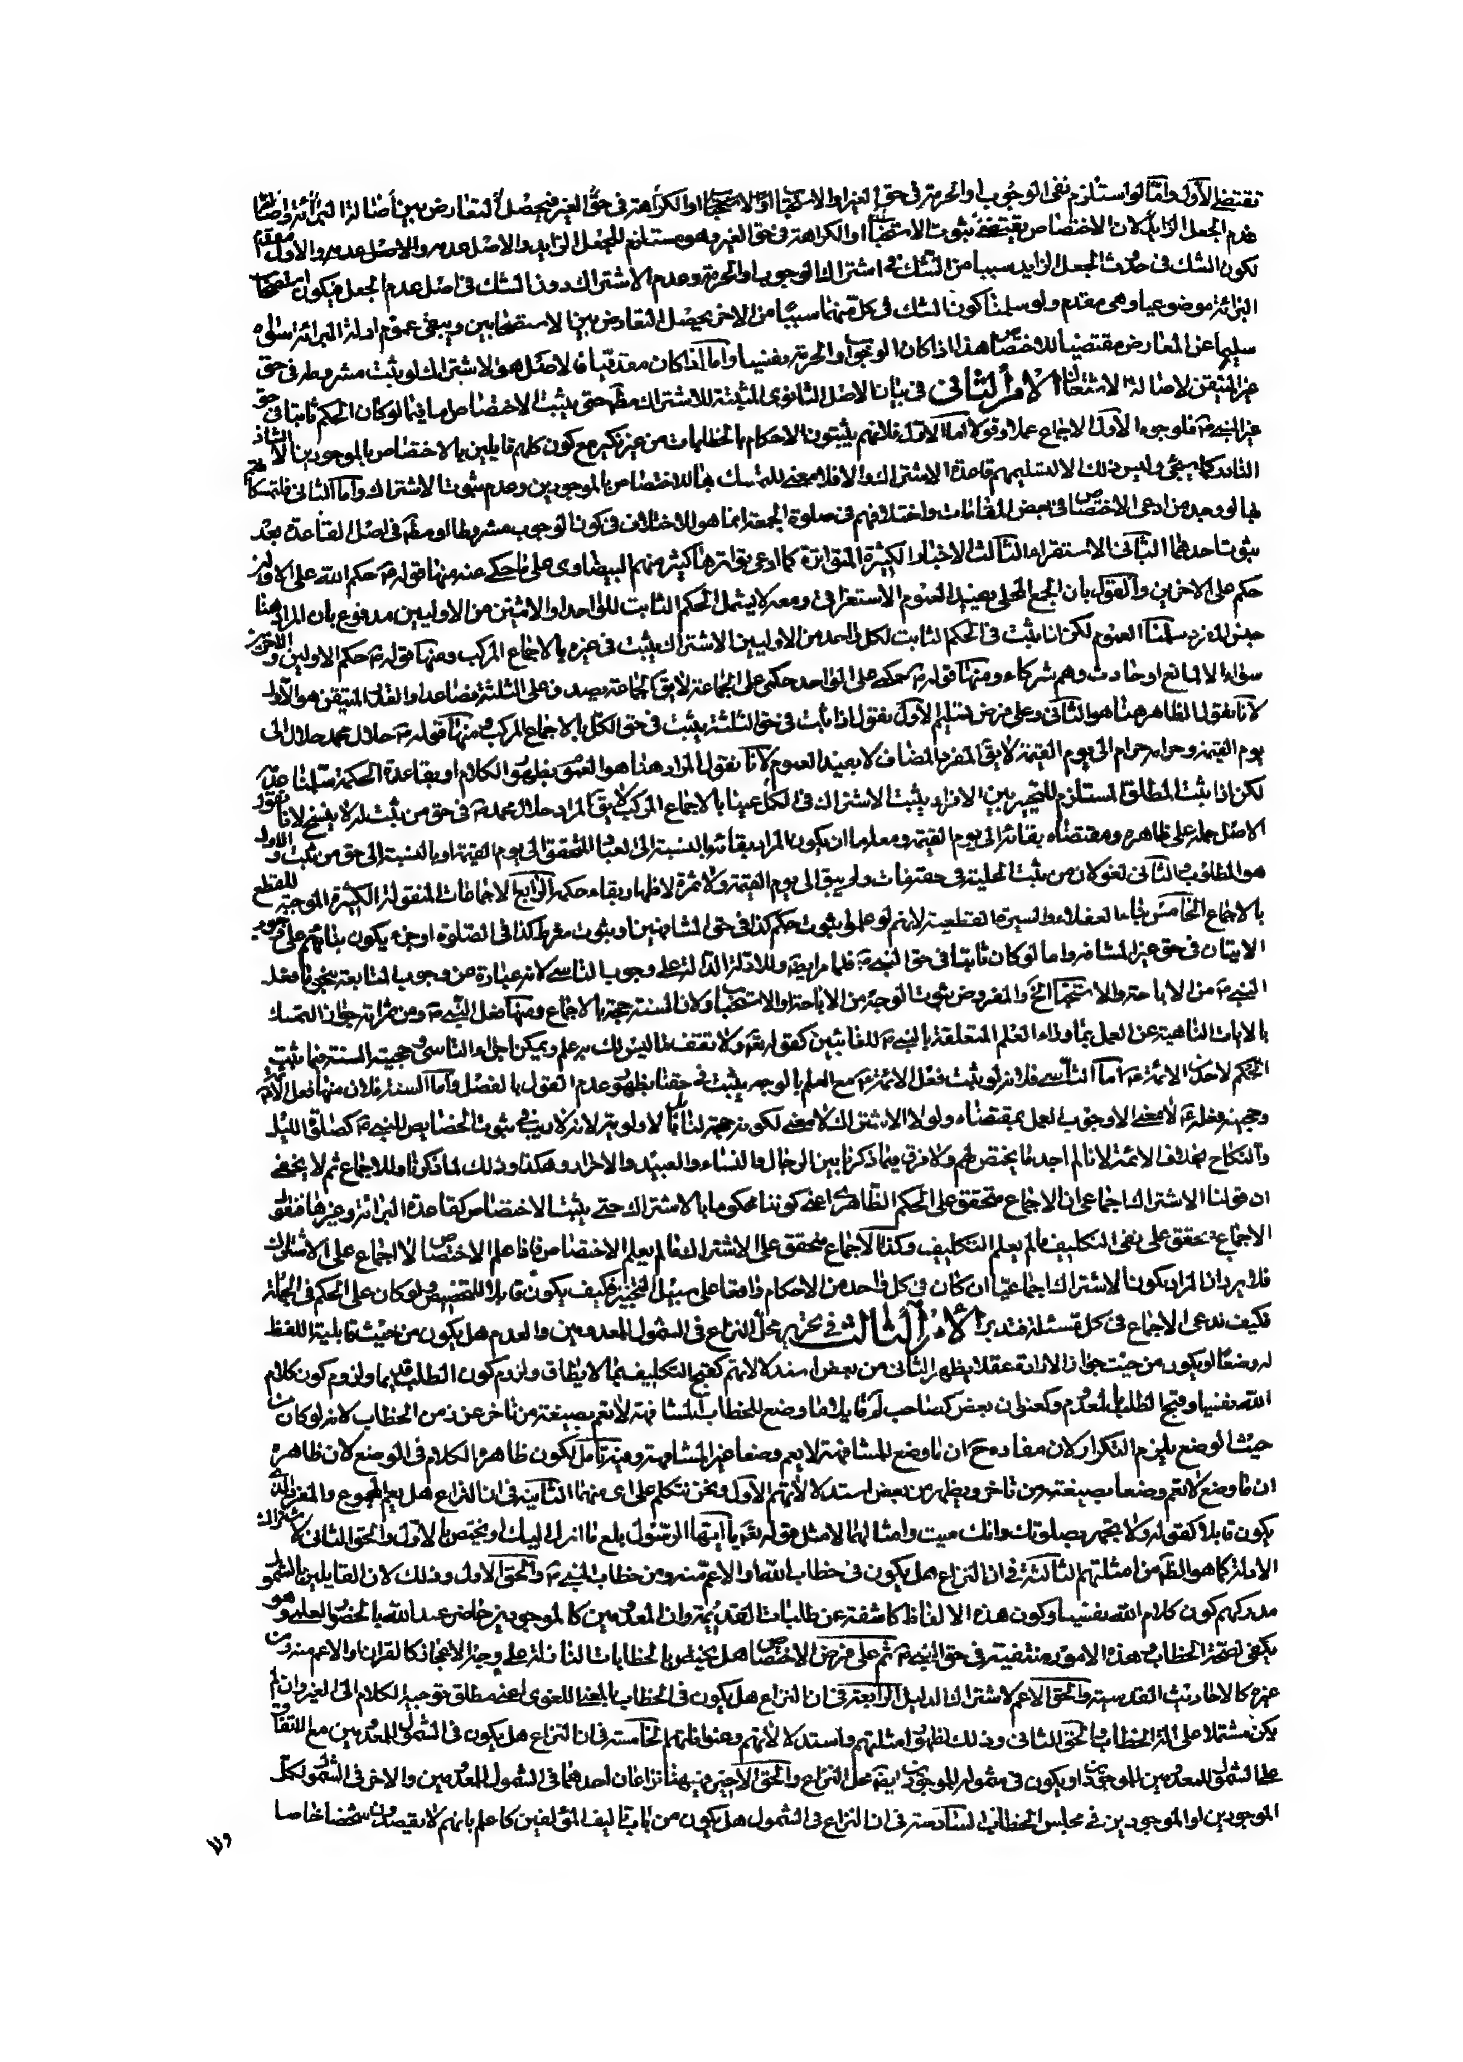 تقتضى الأول واما لو استلزم نفى الوجوب او الحرمة فى حق الغير او الاستحباب او الكراهة فى حق الغير فيحصل التعارض بين أصالة البرائة واصالة
عدم الجعل الزايد لان الاختصاص يقتضى ثبوت الاستحباب او الكراهة فى حق الغير وهو مستلزم للجعل الزايد والاصل عدمه والاصل عدمه والاول مقدم
لكون الشك فى حدث الجعل الزايد سببا من الشك فى اشتراك الوجوب او الحرمة وعدم الاشتراك دون الشك فى اصل عدم الجعل فيكون استصحاب
البرائة موضوعيا وهى مقدم ولو سلمنا كون الشك فى كل منهما سببا من الاخر يحصل التعارض بين الاستصحابين ويبقى عموم ادلة البرائة سواه
سليما عن المعارض مقتضيا للاختصاص هذا اذا كان الوجوب او الحرمة نفسيا واما اذا كان مقدميا فالاصل هو الاشتراك لو يثبت مشروطه فى حق
غير المتيقن لاصالة الاشتغال الأمر الثانى فى بيان الاصل الثانوى المثبتة للاشتراك مطم حتى يثبت الاختصاص اما فيما لو كان الحكم ثابتا فى حق
غير النبى ص فلوجوه الأول الاجماع عملا وقولا اما الأول فلانهم يثبتون الاحكام بالخطابات من غير نكير مع كون كلهم قايلين بالاختصاص بالموجودين الا الشاذ
النادر كما سيجئ وليس ذلك الا لتسليمهم قاعدة الاشتراك والا فلا معنى للتمسك بها للاختصاص بالموجودين وعدم ثبوت الاشتراك واما الثانى فلتمسكاتهم
بها لو وجد من ادعى الاختصاص فى بعض المقامات واختلافهم فى صلوة الجمعة انما هو للاختلاف فى كون الوجوب مشروطا او مطم فى اصل القاعدة بعد
ثبوت احدهما الثانى الاستقراء الثالث الاخبار الكثيرة المتواترة كما ادعى تواترها كثير منهم البيضاوى على ما حكى عنه منها قوله ص حكم الله على الاولين
حكم على الاخرين والقول بان الجمع المحلى يفيد العموم الاستغراقى ومعه لا يشمل الحكم الثابت للواحد او الاثنين من الاوليين مدفوع بان المراد هنا
جنس الفرد سلمنا العموم لكن اذا يثبت فى الحكم الثابت لكل فى احد من الاوليين الاشتراك يثبت فى غيره بالاجماع المركب ومنها قوله ص حكم الاولين والاخرين
سواء الا لمانع او حادث وهم شركاء ومنها قوله ص حكمى على الواحد حكمى على الجماعة لا يق الجماعة يصدق على الثلثة فصاعدا والقدر المتيقن هو الأول
لانا نقول الظاهر هنا هو الثانى وعلى فرض تسليم الأول نقول اذا ثبت فى حق الثلثة يثبت فى حق الكل بالاجماع المركب ومنها قوله ص حلال محمد حلال الى
يوم القيمة وحرامه حرام الى يوم القيمة لا يق المفرد المضاف لا يفيد العموم لانا نقول المراد هنا هو العموم بظهور الكلام او بقاعدة الحكمة سلمنا عدمه
لكن اذا ثبت المطلق المستلزم للتخيير بين الافراد يثبت الاشتراك فى الكل عينا بالاجماع المركب لا يق المراد حلال محمد ص فى حق من ثبت له لا ينسخ لانا نقول
الاصل حمله على ظاهره ومقتضاه بقائه الى يوم القيمة ومعلوم اما ان يكون المراد بقائه بالنسبة الى العباد المتحقق الى يوم القيمة او بالنسبة الى حق من ثبت والاول
هو المطلوب والثانى لغو لان من ثبت الحلية فى حقه فات ولم يبق الى يوم القيمة ولا ثمرة لاظهار بقاء حكمه الرابع الاجماعات المنقولة الكثيرة الموجبة للقطع
بالاجماع الخامس بناء العقلاء والسيرة القطعية لانهم لو علموا بثبوت حكم كذا فى حق المشافهين او ثبوت مفهما كذا فى الصلوة او جزء يكون بنائهم على وجوب
الاتيان فى حق غير المشافه واما لو كان ثابتا فى حق النبى ص فلما مر ايضه وللادلة الدالة على وجوب التاسى لانه عبارة عن وجوب المتابعة بنحو ما فعله
النبى ص من الاباحة والاستحباب الخ والمفروض ثبوت الوجه من الاباحة والاستحباب ولان السنة حجة بالاجماع ومنها فعل النبى ص ومن ثمراته جواز التمسك
بالايات الناهية عن العمل بما وراء العلم المتعلقة بالنبى ص للغائبين كقوله تعم ولا تقف ما ليس لك به علم ويمكن اجراء التاسى وحجية السنة فيما يثبت
الحكم لاحد من الائمة ع اما التاسى فلانه لو يثبت فعل الائمة ع مع العلم بالوجه يثبت فى حقنا بظهور عدم القول بالفصل واما السنة فلان منها فعل الائمة
وحجية فعله ع لا معنى الا وجوب العمل بمقتضاه ولولا الاشتراك لا معنى لكونه حجة لنا بل الاولوية لانه لا ريب فى ثبوت الخصايص للنبى ص كصلوة الليل
والنكاح بخلاف الائمة لانا لم اجد ما يختص لهم ولا فرق فيما ذكرنا بين الرجال والنساء والعبيد والاحرار وهكذا وذلك لما ذكرنا وللاجماع ثم لا يخفى
ان قولنا الاشتراك اجماعى ان الاجماع متحقق على الحكم الظاهرى اعنى كوننا محكوما بالاشتراك حتى يثبت الاختصاص كقاعدة البرائة وغيرها فنقول
الاجماع تحقق على نفى التكليف ما لم يعلم التكليف وكذا الاجماع متحقق على الاشتراك ما لم يعلم الاختصاص فاذا علم الاختصاص لا اجماع على الاشتراك
فلا يرد ان المراد بكون الاشتراك اجماعيا ان كان فى كل واحد من الاحكام واقعا على سبيل التنجيز فكيف يكون قابلا للتخصيص ولو كان على الحكم فى الجملة
فكيف ندعى الاجماع فى كل مسئلة فتدبر الأمر الثالث فى تحرير محل النزاع فى الشمول للمعدومين والعدم هل يكون من حيث قابلية اللفظ
له وضعا او يكون من حيث جواز الارادة عقلا يظهر الثانى من بعض استدلالاتهم كقبح التكليف بما لا يطاق ولزوم كون الطلب قديما ولزوم كون كلام
الله نفسيا وقبح الطلب للمعدوم وكعنوان بعض كصاحب لم قايلا ما وضع للخطاب المشافهة لا يعم بصيغته من تاخر عن زمن الخطاب لانه لو كان من
حيث الوضع يلزم التكرار لان مفاده ح ان ما وضع للمشافهة لا يعم وضعا غير المشافهة وفيه تامل لكون ظاهر الكلام فى الوضع لان ظاهره
ان ما وضع لا يعم وضعا بصيغته من تاخر ويظهر من بعض استدلالاتهم الأول ونحن نتكلم على اى منهما الثانية فى ان النزاع هل يعم الجموع والمفرد الذى
يكون قابلا كقوله ولا تجهر بصلوتك وانك ميت وامثالهما لا مثل قوله تعم يا ايها الرسول بلغ ما انزل اليك او يختص بالأول والحق الثانى لاشتراك
الادلة كما هو الظم من امثلتهم الثالثة فى ان النزاع هل يكون فى خطاب الله او الاعم منه ومن خطاب النبى ص والحق الاول وذلك لان القايلين بالشمول
مدركهم كون كلام الله نفسيا وكون هذه الالفاظ كاشفة عن طلبات القديمة وان المعدومين كالموجودين حاضر عند الله بالحضور العلمى وهو
يكفى لصحة الخطاب وهذه الامور منتفية فى حق النبى ص ثم على فرض الاختصاص هل يختص بالخطابات النازلة على وجه الاعجاز كالقران او الاعم منه ومن
غيره كالاحاديث القدسية والحق الاعم لاشتراك الدليل الرابعة فى ان النزاع هل يكون فى الخطاب بالمعنى اللغوى اعنى مطلق توجيه الكلام الى الغير وان لم
يكن مشتملا على الة الخطاب والحق الثانى وذلك لظهور امثلتهم واستدلالاتهم وعنواناتهم الخامسة فى ان النزاع هل يكون فى الشمول للمعدومين مع الاتفاق
على الشمول للمعدومين للموجودين او يكون فى شموله للموجودين ايضه محل النزاع والحق الاخير فيهنا نزاعان احدهما فى الشمول للمعدومين والاخر فى الشمول لكل
الموجودين او الموجودين فى مجلس الخطاب السادسة فى ان النزاع فى الشمول هل يكون من باب تاليف المؤلفين كا علم بانهم لا يقصدون شخصا خاصا
ولا